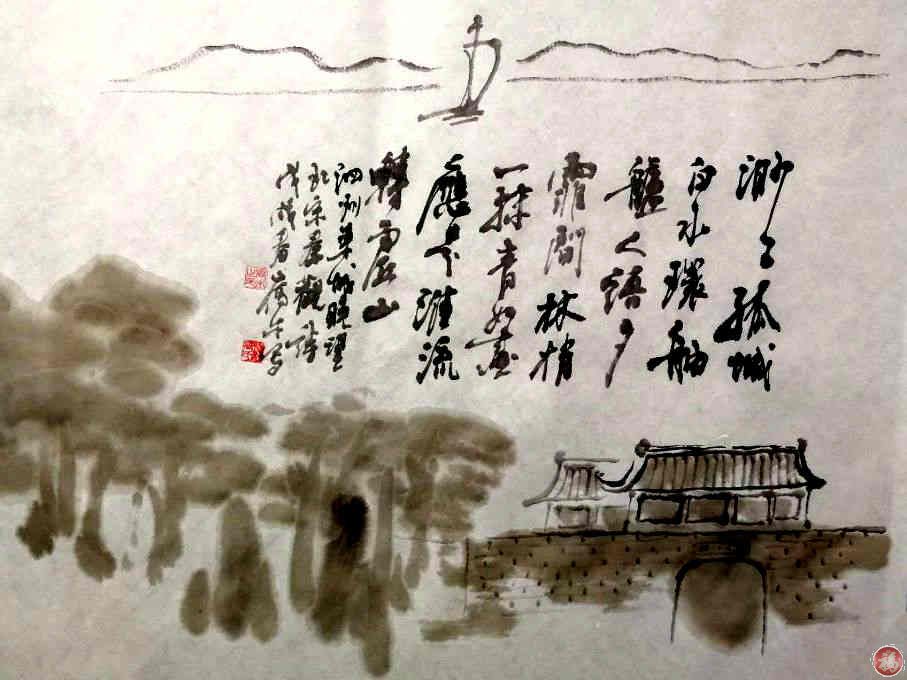 渺々孤城
白水環舳
艫人語夕
霏間林梢
一抹青如畫
應是淮流
轉處山
泗州東城晚望
北宋秦觀詩
戊戌春
福